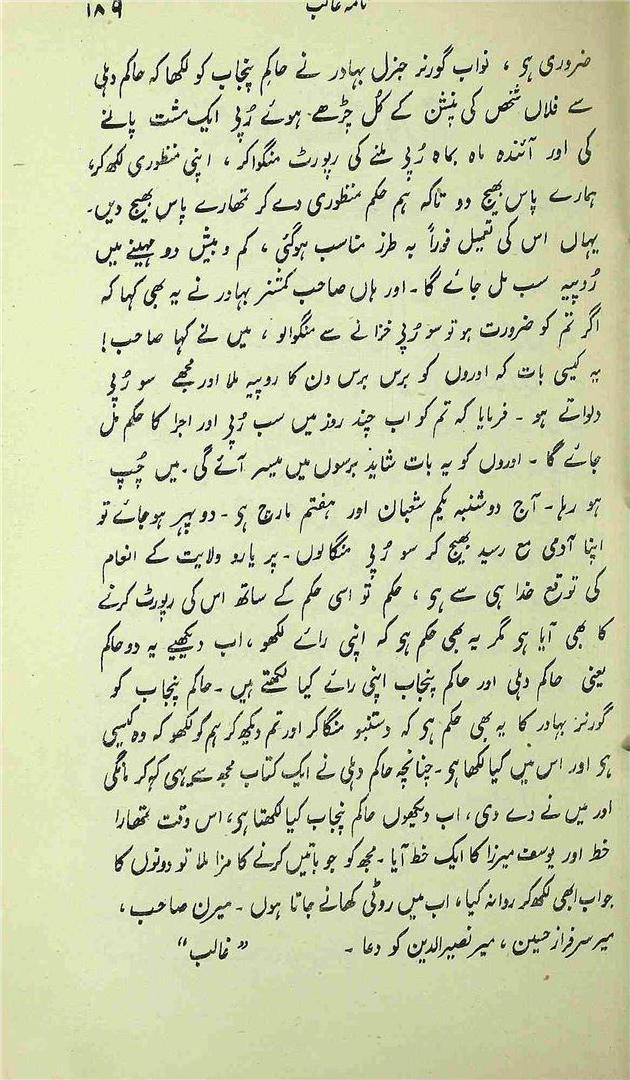 نامۂ غالب ۱۸۹
ضروری ہو ، نواب گورنر جنرل بہادر نے حاکم پنجاب کو لکھا کہ حاکم دہلی
سے فلاں شخص کی پنشن کے کُل چڑھے ہوئے رُپی ایک مشت پانے
کی اور آئندہ ماہ بماہ رُپی ملنے کی رپورٹ منگوا کر ، اپنی منظوری لکھ کر،
ہمارے پاس بھیج دو تاکہ ہم حکم منظوری دے کر تمھارے پاس بھیج دیں۔
یہاں اس کی تعمیل فوراً بہ طرز مناسب ہوگئی ، کم و بیش دو مہینے میں
رُوپیہ سب مل جائے گا۔ اور ہاں صاحب کمشنر بہادر نے یہ بھی کہا کہ
اگر تم کو ضرورت ہو تو سو رُپی خزانے سے منگوالو ، میں نے کہا صاحب!
یہ کیسی بات کہ اوروں کو برس برس دن کا روپیہ ملا اور مجھے سو رُپی
دلواتے ہو ۔ فرمایا کہ تم کو اب چند روز میں سب رُپی اور اجرا کا حکم مل
جائے گا ۔ اوروں کو یہ بات شاید برسوں میں میسر آئے گی ۔ میں چُپ
ہو رہا۔ آج دوشنبہ یکم شعبان اور ہفتم مارچ ہو ۔ دوپہر ہوجائے تو
اپنا آدمی مع رسید بھیج کر سو رُپی منگالوں۔ پر یارو ولایت کے انعام
کی توقع خدا ہی سے ہو ، حکم تو اسی حکم کے ساتھ اس کی رپورٹ کرنے
کا بھی آیا ہو مگر یہ بھی حکم ہو کہ اپنی رائے لکھو ، اب دیکھیے یہ دو حاکم
یعنی حاکم دہلی اور حاکم پنجاب اپنی رائے کیا لکھتے ہیں ۔ حاکم پنجاب کو
گورنر بہادر کا یہ بھی حکم ہو کہ دستنبو منگا کر اور تم دیکھ کر ہم کو لکھو کہ وہ کیسی
ہو اور اس میں کیا لکھا ہو ۔ چنانچہ حاکم دہلی نے ایک کتاب مجھ سے یہی کہہ کر مانگی
اور میں نے دے دی، اب دیکھوں حاکم پنجاب کیا لکھتا ہو، اس وقت تمھارا
خط اور یوسف میرزا کا ایک خط آیا ۔ مجھ کو جو باتیں کرنے کا مزا ملا تو دونوں کا
جواب ابھی لکھ کر روانہ کیا ، اب میں روٹی کھانے جاتا ہوں ۔ میرن صاحب ،
میر سرفراز حسین ، میر نصیرالدین کو دعا ۔ ”غالب“